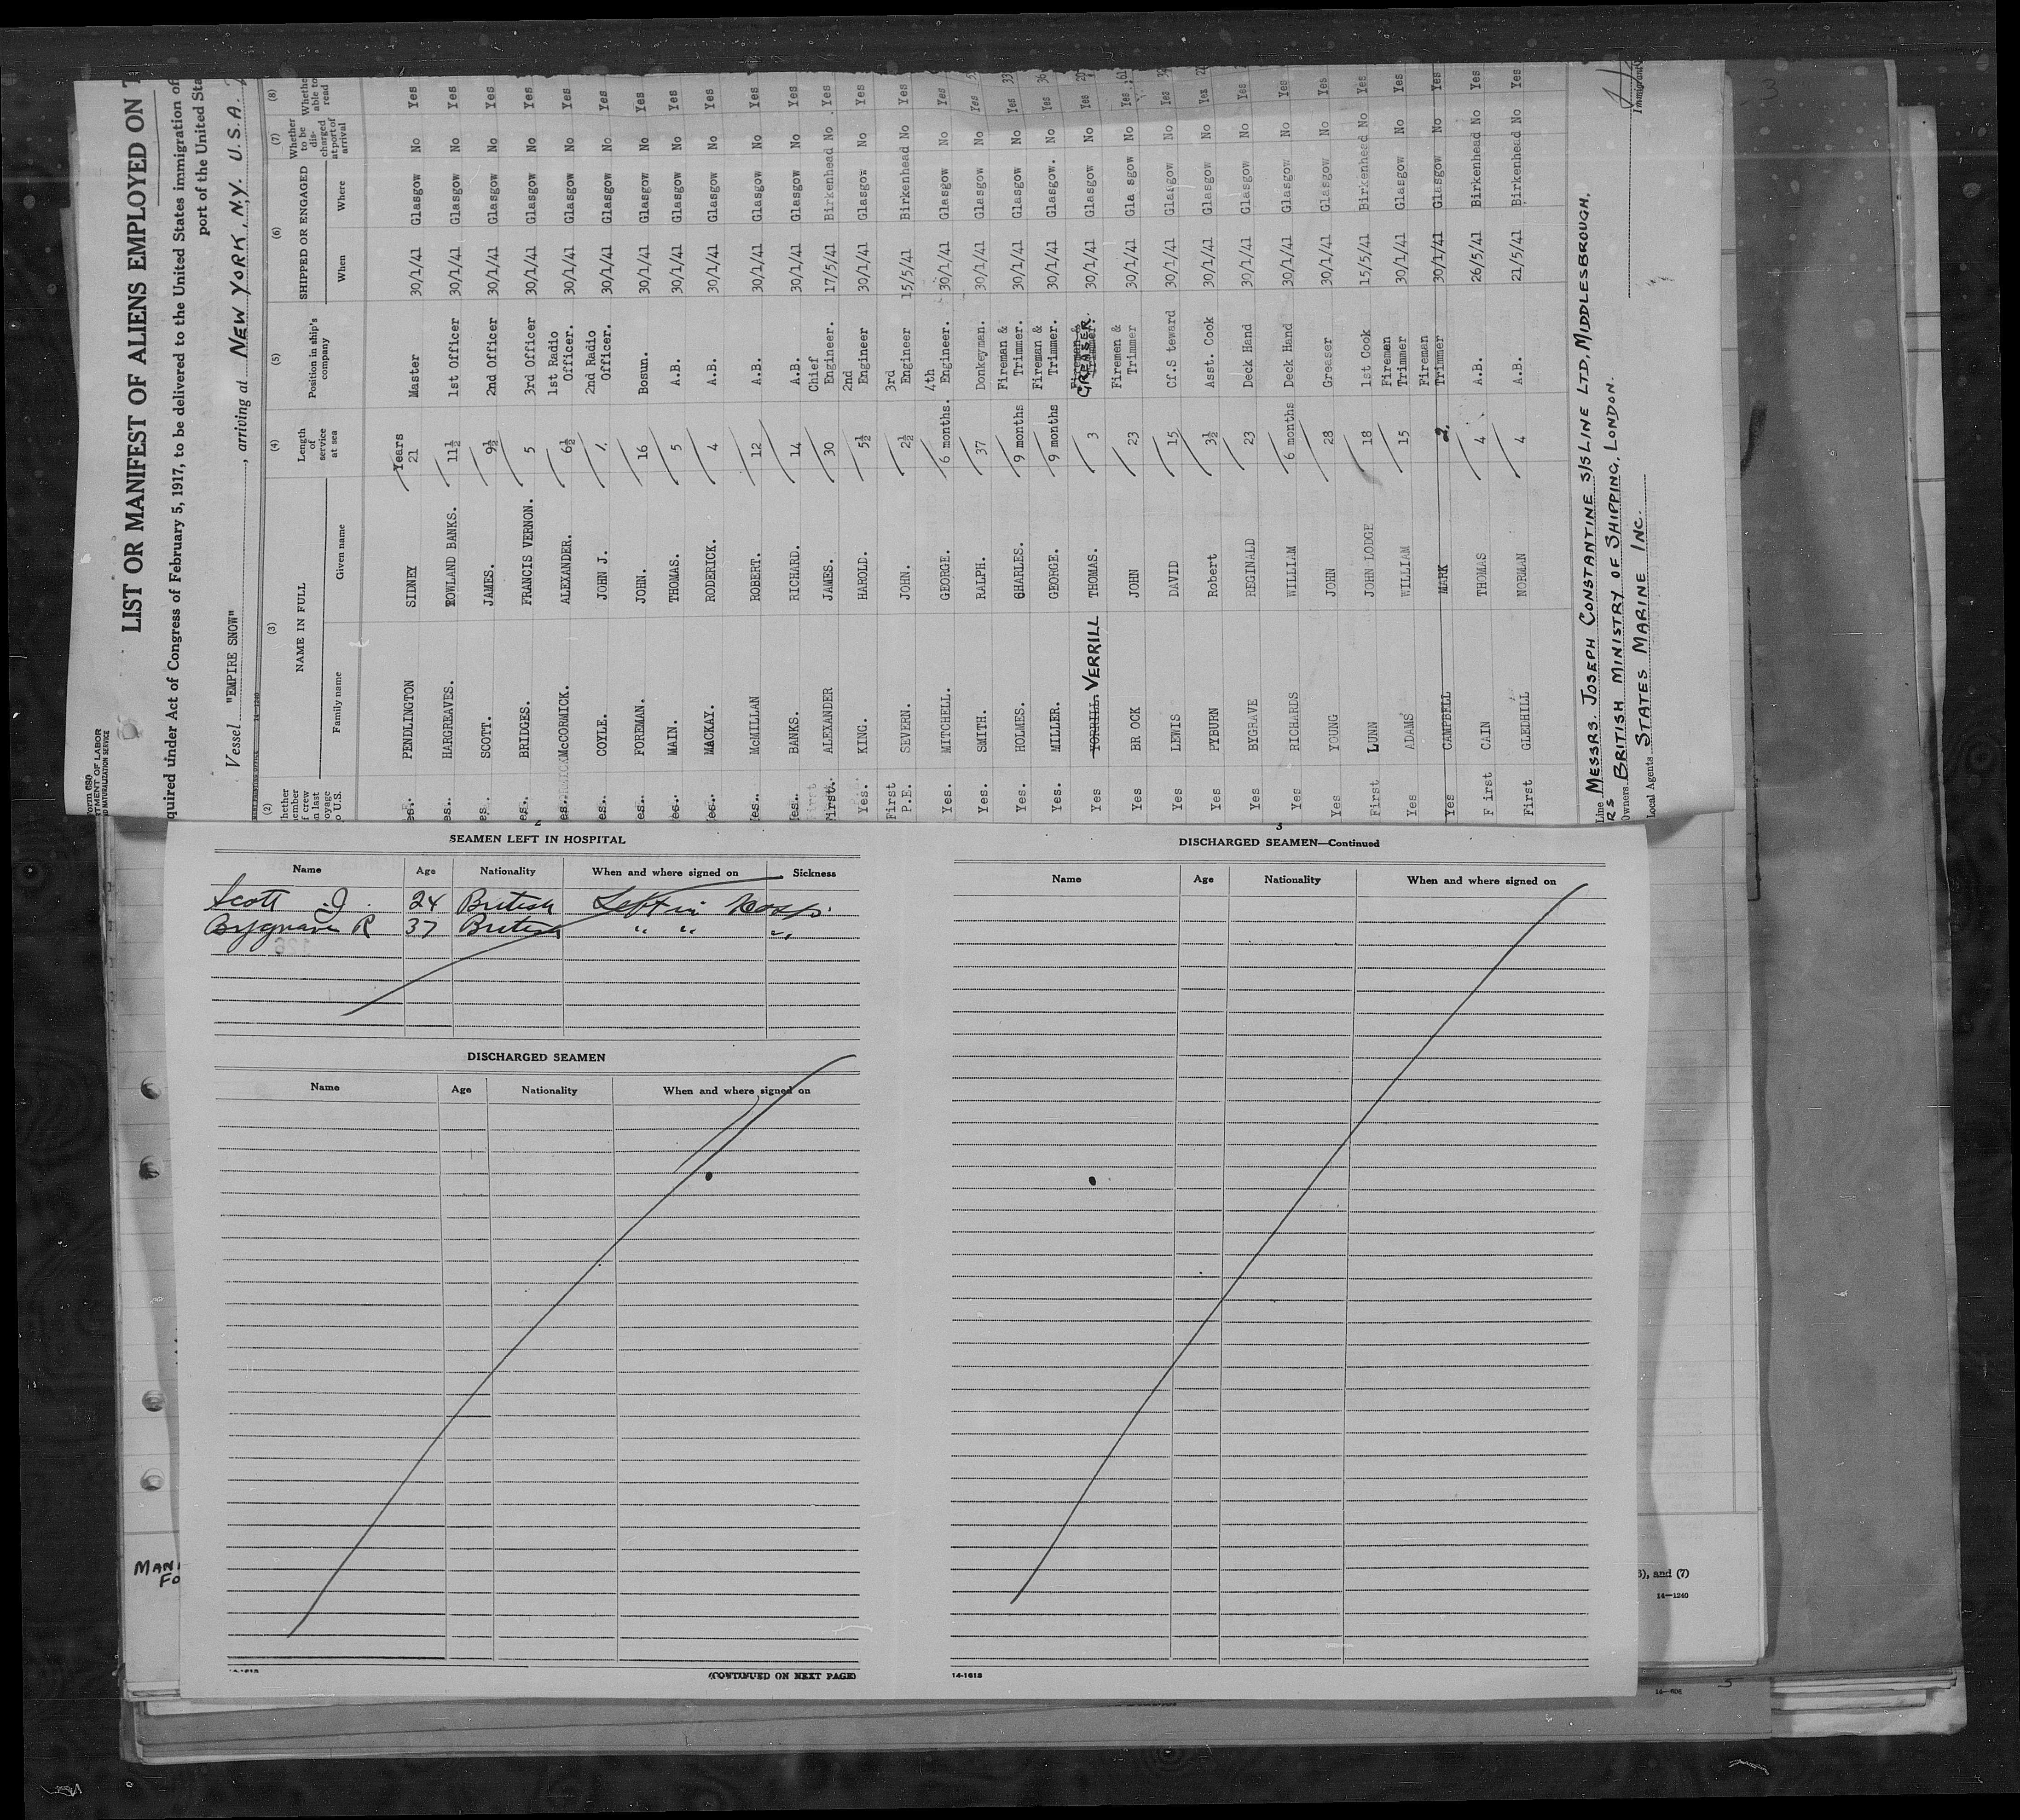 Form 680
LIST OR MANIFEST OF ALIENS EMPLOYED ON T
quired under Act of Congress of February 5, 1917, to be delivered to the United States immigration of
port of the United Sta
Vessel "EMPIRE SNOW", arriving at NEW YORK, N.Y. U.S.A.
(2) (3) (4) (5) (6) (7) (8)
NAME IN FULL
Family name Given name
Length of service at sea
Position in ship's company
SHIPPED OR ENGAGED
When Where
Whether to be discharged at port of arrival
Whether able to read
es. PENDLINGTON SIDNEY Years 21 Master 30/1/41 Glasgow No Yes
es. HARGREAVES. ROWLAND BANKS. 11½ 1st Officer 30/1/41 Glasgow No Yes
es. SCOTT. JAMES. 9½ 2nd Officer 30/1/41 Glasgow No Yes
es. BRIDGES. FRANCIS VERNON. 5 3rd Officer 30/1/41 Glasgow No Yes
es. McCORMICK. ALEXANDER. 6½ 1st Radio Officer. 30/1/41 Glasgow No Yes
es. COYLE. JOHN J. 2nd Radio Officer. 30/1/41 Glasgow No Yes
es. FOREMAN. JOHN. 16 Bosun. 30/1/41 Glasgow No Yes
Yes. MAIN. THOMAS. 5 A.B. 30/1/41 Glasgow No Yes
Yes. MACKAY. RODERICK. 4 A.B. 30/1/41 Glasgow No Yes
Yes. McMILLAN ROBERT. 12 A.B. 30/1/41 Glasgow No Yes
Yes. BANKS. RICHARD. 14 A.B. 30/1/41 Glasgow No Yes
First. ALEXANDER JAMES. 30 Chief Engineer. 17/5/41 Birkenhead No Yes
Yes. KING. HAROLD. 5½ 2nd Engineer 30/1/41 Glasgow No Yes
First P.E. SEVERN. JOHN. 2½ 3rd Engineer 15/5/41 Birkenhead No Yes
Yes. MITCHELL. GEORGE. 6 months. 4th Engineer. 30/1/41 Glasgow No Yes
Yes. SMITH. RALPH. 37 Donkeyman. 30/1/41 Glasgow No Yes
Yes. HOLMES. CHARLES. 9 months Fireman & Trimmer. 30/1/41 Glasgow No Yes 33
Yes. MILLER. GEORGE. 9 months Fireman & Trimmer. 30/1/41 Glasgow. No Yes 36
Yes YORRILL VERRILL THOMAS. 3 Fireman & Trimmer. GREASER 30/1/41 Glasgow No Yes 20
Yes BR OCK JOHN 23 Firemen & Trimmer 30/1/41 Gla sgow No Yes 61
Yes LEWIS DAVID 15 Cf.S teward 30/1/41 Glasgow No Yes
Yes PYBURN Robert 3½ Asst. Cook 30/1/41 Glasgow No Yes
Yes BYGRAVE REGINALD 23 Deck Hand 30/1/41 Glasgow No Yes
Yes RICHARDS WILLIAM 6 months Deck Hand 30/1/41 Glasgow No Yes
Yes YOUNG JOHN 28 Greaser 30/1/41 Glasgow No Yes
First LUNN JOHN LODGE 18 1st Cook 15/5/41 Birkenhead No Yes
Yes ADAMS WILLIAM 15 Fireman Trimmer 30/1/41 Glasgow No Yes
Yes CAMPBELL MARK 2. Fireman Trimmer 30/1/41 Glasgow No Yes
F irst CAIN THOMAS 4 A.B. 26/5/41 Birkenhead No Yes
First GLEDHILL NORMAN 4 A.B. 21/5/41 Birkenhead No Yes
Line MESSRS. JOSEPH CONSTANTINE S/S LINE LTD, MIDDLESBROUGH.
Owners BRITISH MINISTRY OF SHIPPING, LONDON.
Local Agents STATES MARINE INC.
2
SEAMEN LEFT IN HOSPITAL
Name Age Nationality When and where signed on Sickness
Scott J. 24 British Left in Hosp.
Bygrave R 37 British " " "
DISCHARGED SEAMEN
Name Age Nationality When and where signed on
(CONTINUED ON NEXT PAGE)
3
DISCHARGED SEAMEN—Continued
Name Age Nationality When and where signed on
14-1613
MAN
FO
, and (7)
14—1240